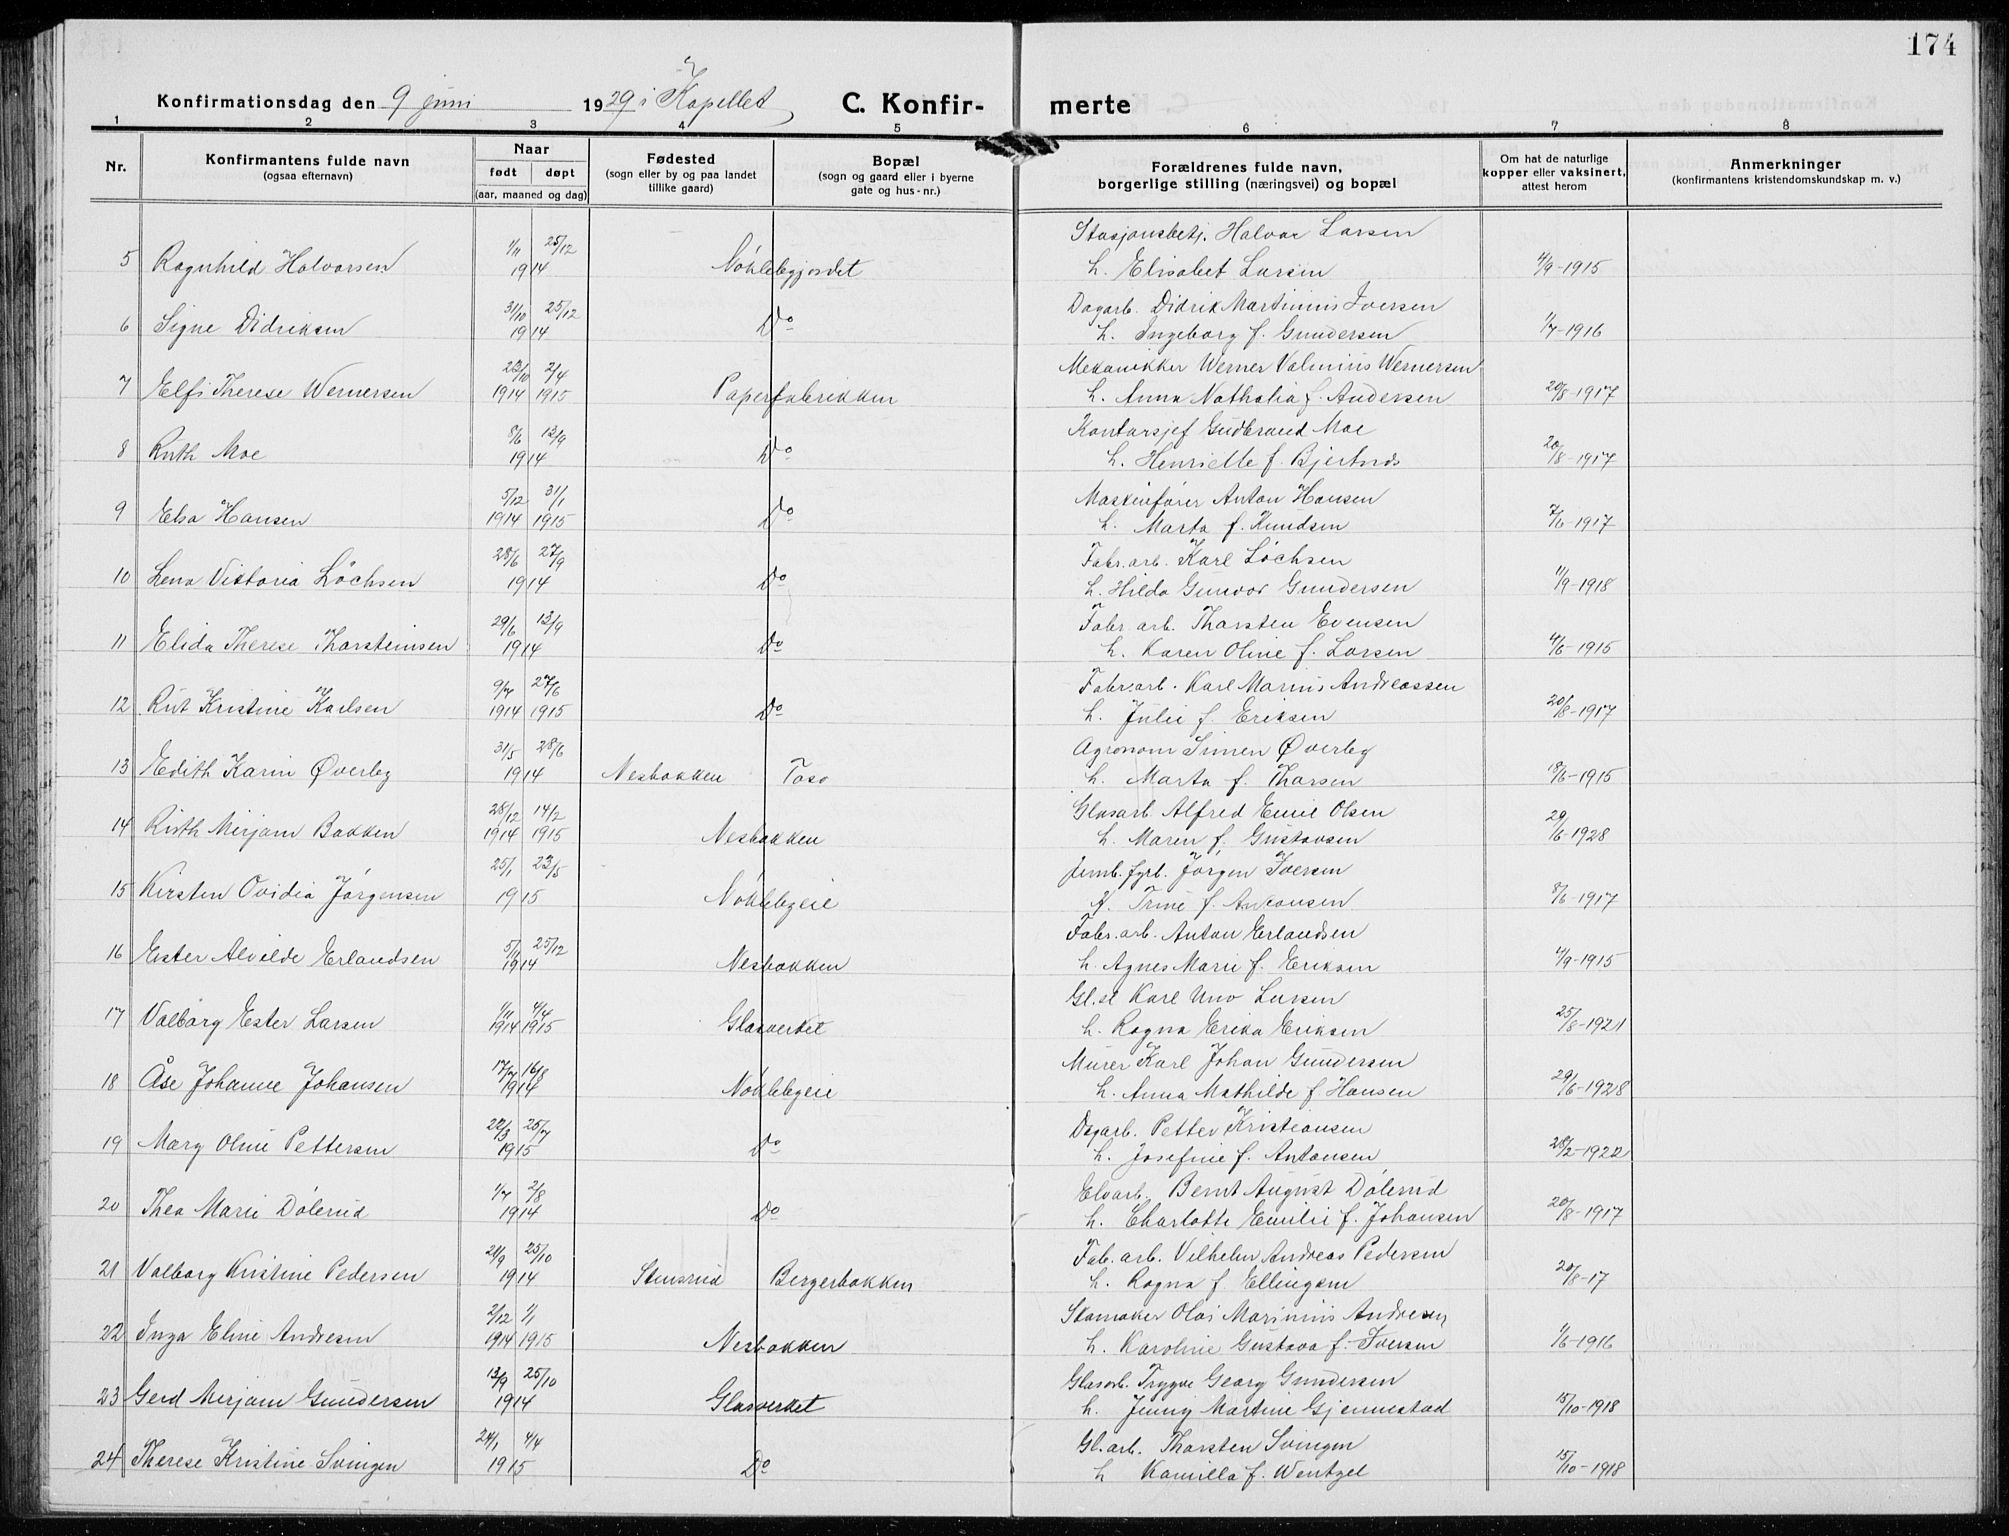 174
Konfirmationsdag den 9 juni 1929 i Kapellet C. Konfirmerte
1 2 3 4 5 6 7 8
Nr. Konfirmantens fulde navn (ogsaa efternavn) Naar født døpt (aar, maaned og dag) Fødested (sogn eller by og paa landet tillike gaard) Bopæl (sogn og gaard eller i byerne gate og hus-nr.) Forældrenes fulde navn, borgerlige stilling (næringsvei) og bopæl Om hat de naturlige kopper eller vaksinert, attest herom Anmerkninger (konfirmantens kristendomskundskap m. v.)
1/11 25/12 Stasjonsbetj. Halvor Larsen
5 Ragnhild Halvorsen 1914 Nøklebgjordet h. Elisabet Larsen 4/9-1915
31/10 25/12 Dagarb. Didrik Martinius Iversen
6 Signe Didriksen 1914 Do h. Ingeborg f. Gundersen 1/7-1916
22/10 2/4 Mekanikker Werner Valinius Wernersen
7 Elfi Therese Wernersen 1914 1915 Paperfabrikken h. Anna Nathalia f. Andersen 20/8-1917
8/6 13/9 Kontorsjef Gudbrand Moe
8 Ruth Moe 1914 Do h. Henriette f. Bjertnæs 20/8-1917
5/12 31/1 Maskinfører Anton Hansen
9 Elsa Hansen 1914 1915 Do h. Marta f. Knudsen 7/6-1917
28/6 27/9 Fabr. arb. Karl Löchsen
10 Lena Viktoria Löchsen 1914 Do h. Hilda Gunvor Gundersen 11/9-1918
29/6 13/9 Fabr. arb. Thorsten Evensen
11 Elida Therese Thorsteinsen 1914 Do h. Karen Oline f. Larsen 4/6-1915
9/7 27/6 Fabr. arb. Karl Marius Andreassen
12 Rut Kristine Karlsen 1914 1915 Do h. Julie f. Eriksen 20/8-1917
31/5 28/6 Agronom Simen Øverby
13 Edith Karin Øverby 1914 Nesbakken Toso h. Marta f. Thorsen 18/6-1915
28/12 14/2 Glasarb. Alfred Emil Olsen
14 Ruth Mirjam Bakken 1914 1915 Nesbakken h. Maren f. Gustavsen 29/6-1928
25/1 23/5 Jernb. fyrb. Jørgen Iversen
15 Kirsten Ovidia Jørgensen 1915 Nøklebyeie h. Trine f. Antonsen 8/6-1917
5/11 25/12 Fabr. arb. Anton Erlandsen
16 Ester Alvilde Erlandsen 1914 Nesbakken h. Agnes Marie f. Eriksen 4/9-1915
1/11 4/4 Gl.sl Karl Uno Larsen
17 Valborg Ester Larsen 1914 1915 Glasverket h. Ragna Erika Eriksen 25/8-1921
17/7 16/8 Murer Karl Johan Gundersen
18 Åse Johanne Johansen 1914 Nøklebyeie h. Anna Mathilde f. Hansen 29/6-1928
22/3 25/7 Dagarb. Petter Kristiansen
19 Mary Oline Pettersen 1915 Do h. Josefine f. Antonsen 28/2-1922
1/7 2/8 Elvarb. Bernt August Dölerud
20 Thea Marie Dölerud 1914 Do h. Charlotte Emilie f. Johansen 20/8-1917
21/9 25/10 Fab. arb. Vilhelm Andreas Pedersen
21 Valborg Kristine Pedersen 1914 Stensrud Bergerbakken h. Ragna f. Ellingsen 20/8-17
2/12 1/1 Skomaker Olai Marinius Andresen
22 Inga Eline Andresen 1914 1915 Nesbakken h. Karoline Gustava f. Iversen 1/6-1916
13/9 25/10 Glasarb. Trygve Georg Gundersen
23 Gerd Mirjam Gundersen 1914 Glasverket h. Jenny Martine Gjennestad 15/10-1918
24/1 4/4 Gl.arb. Thorsten Svingen
24 Therese Kristine Svingen 1915 Do h Kamilla f. Wentzel 15/10-1918